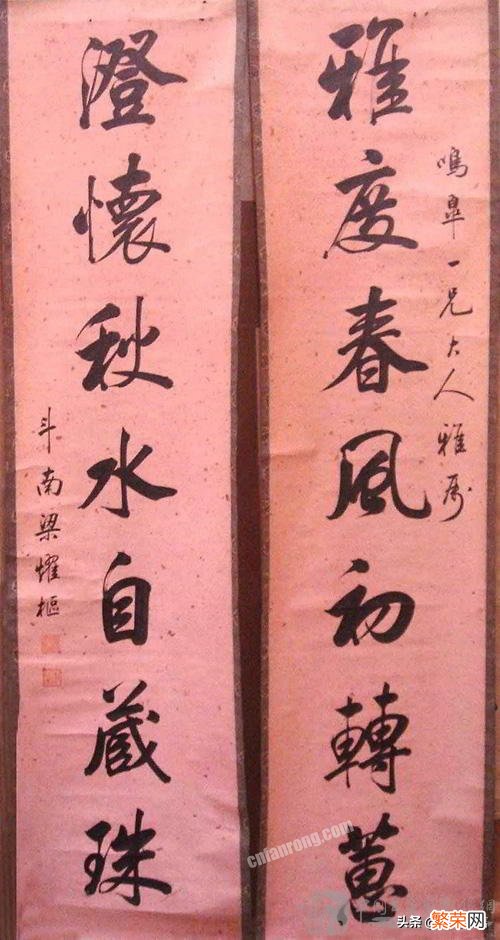 鳴皐一兄大人雅属
雅度春風初轉蕙
澄懷秋水自蔵珠
斗南梁燿樞
cnfanrong.com
头条
繁荣网